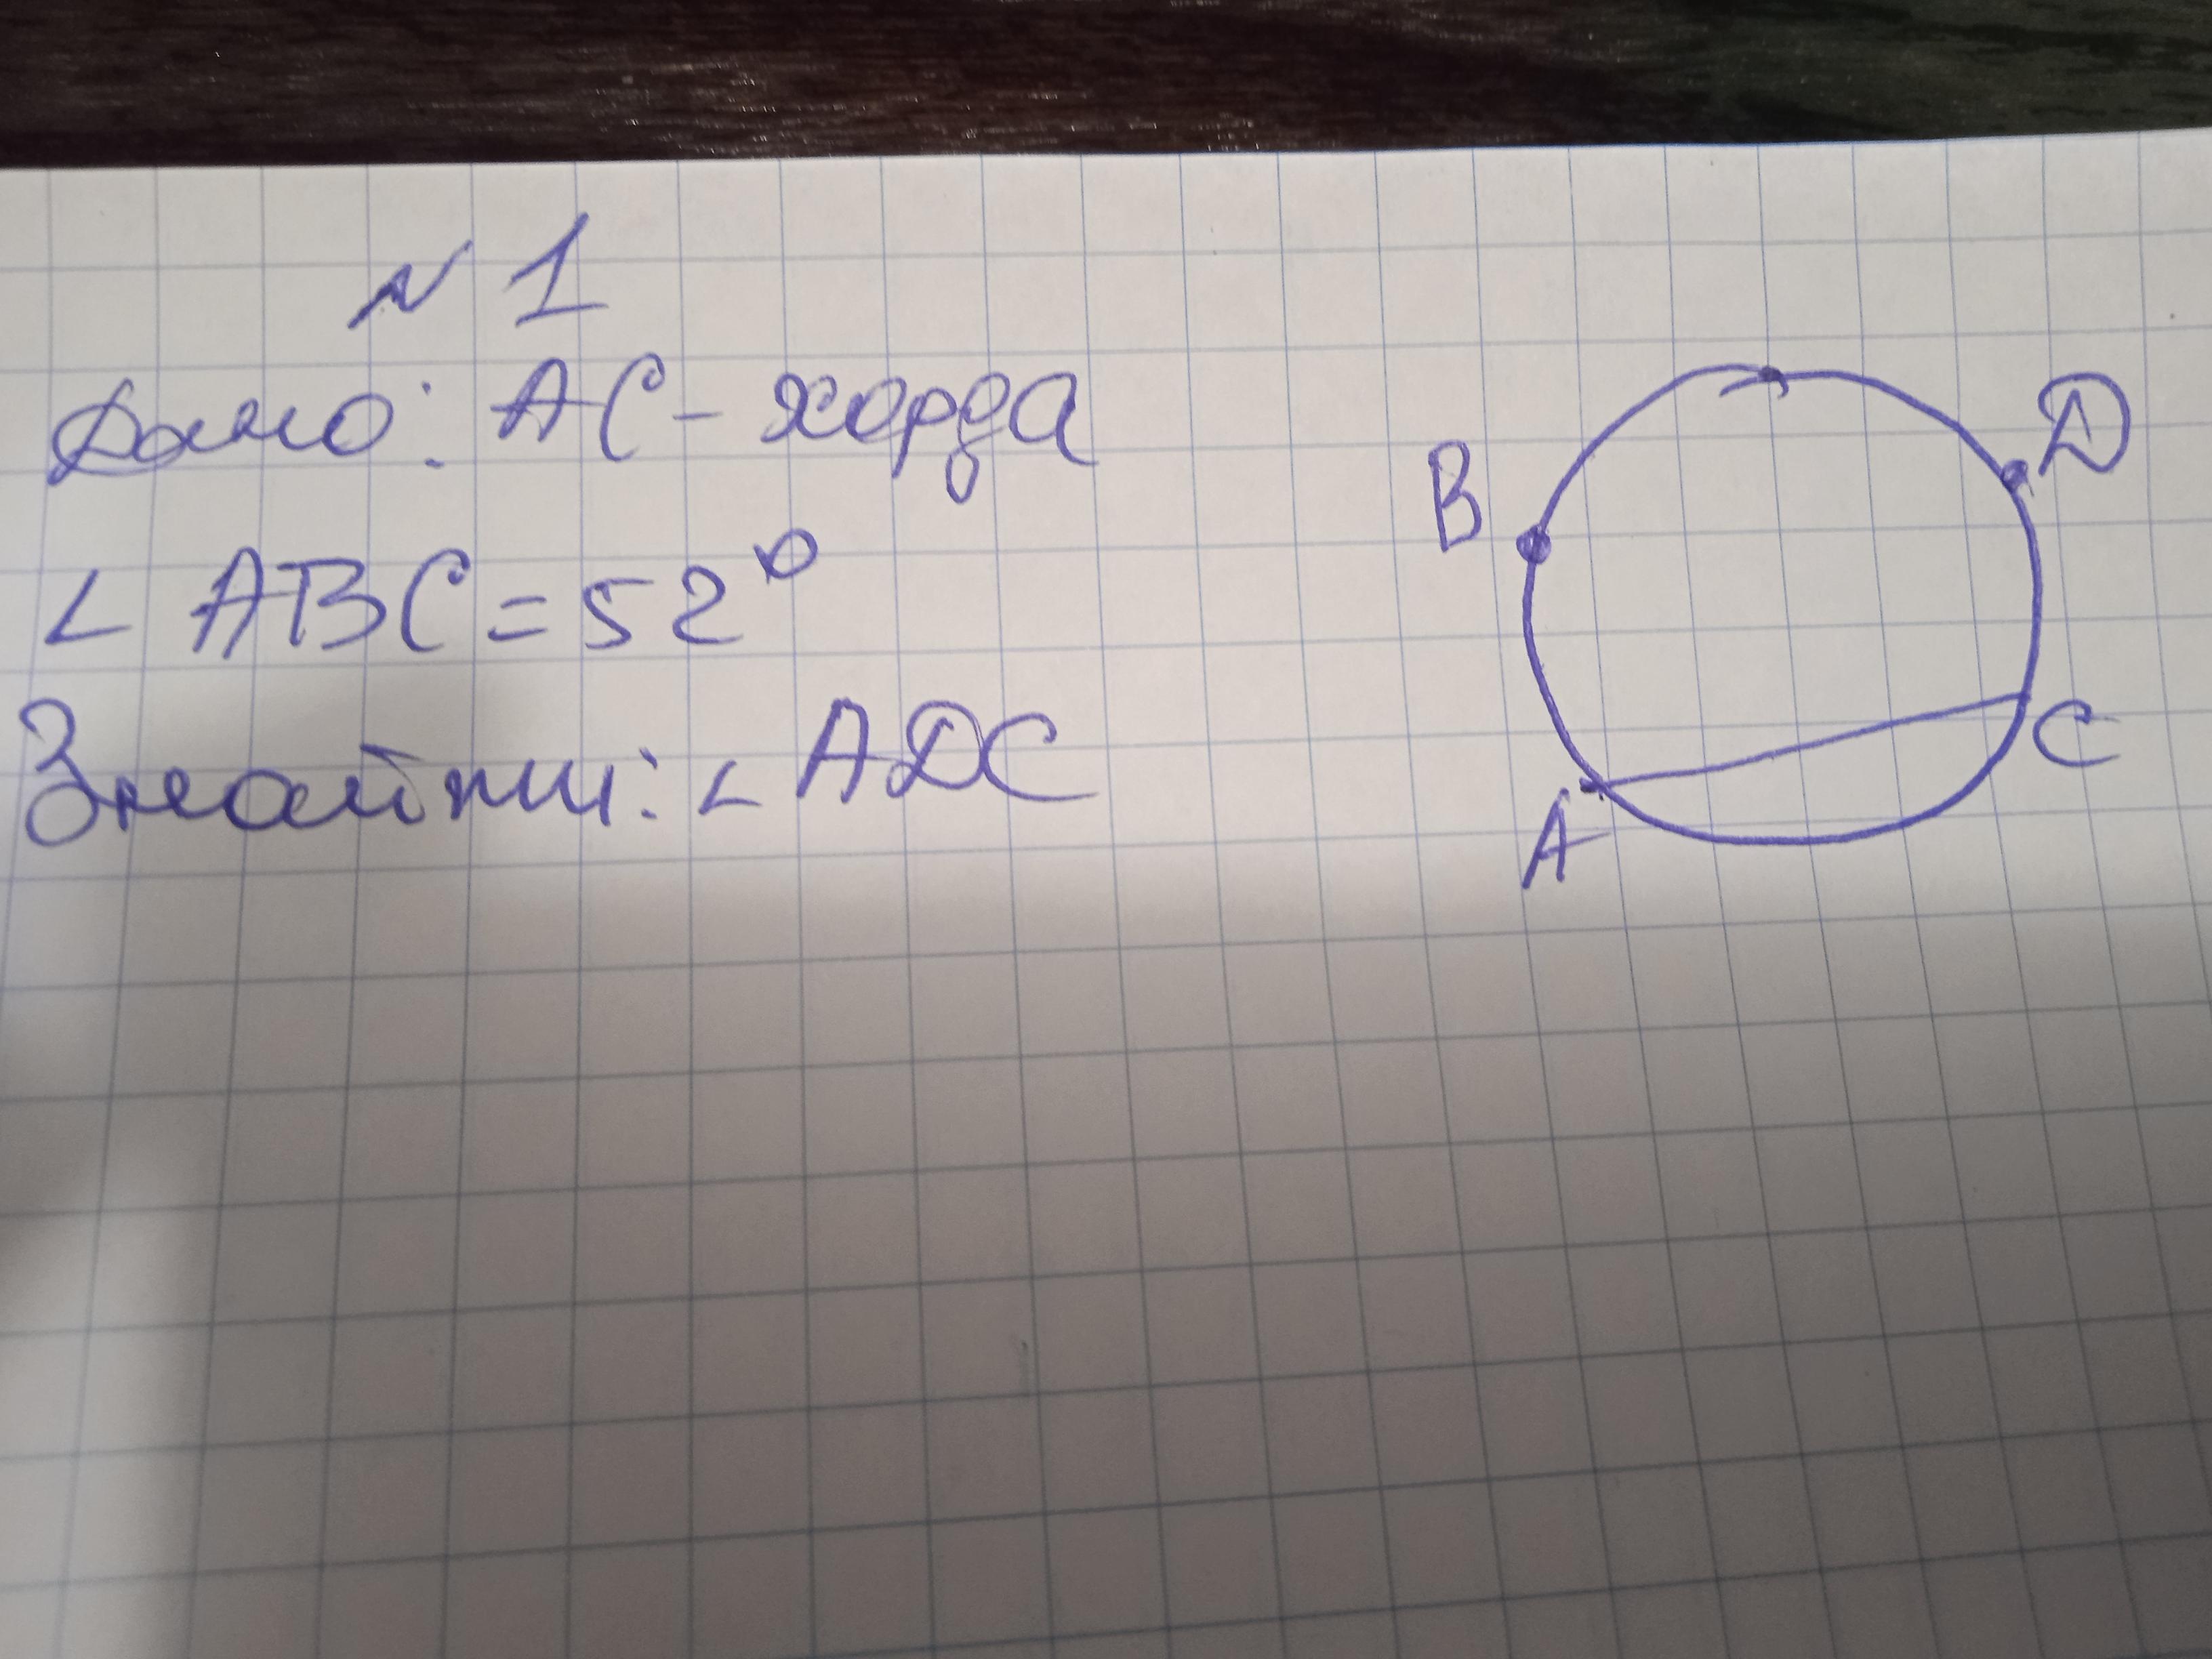 № 1
Дано: AC - хорда
∠ ABC = 52°
Знайти: ∠ ADC
B
D
C
A